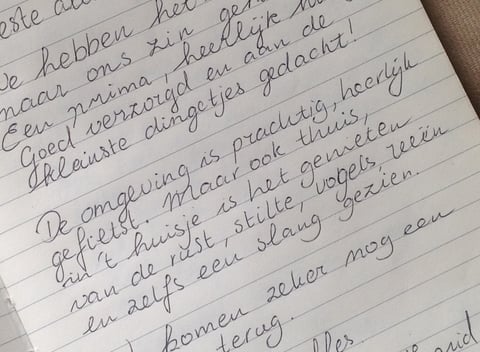 este
Je hebben het
naar ons zin
Een prima, heerlijk
Goed verzorgd en aan de
kleinste dingetjes gedacht!
De omgeving is prachtig, heerlijk
gefietst. Maar ook thuis,
in 't huisje is het genieten
van de rust, stilte, vogels, reeën
en zelfs een slang gezien.
komen zeker nog een
terug.